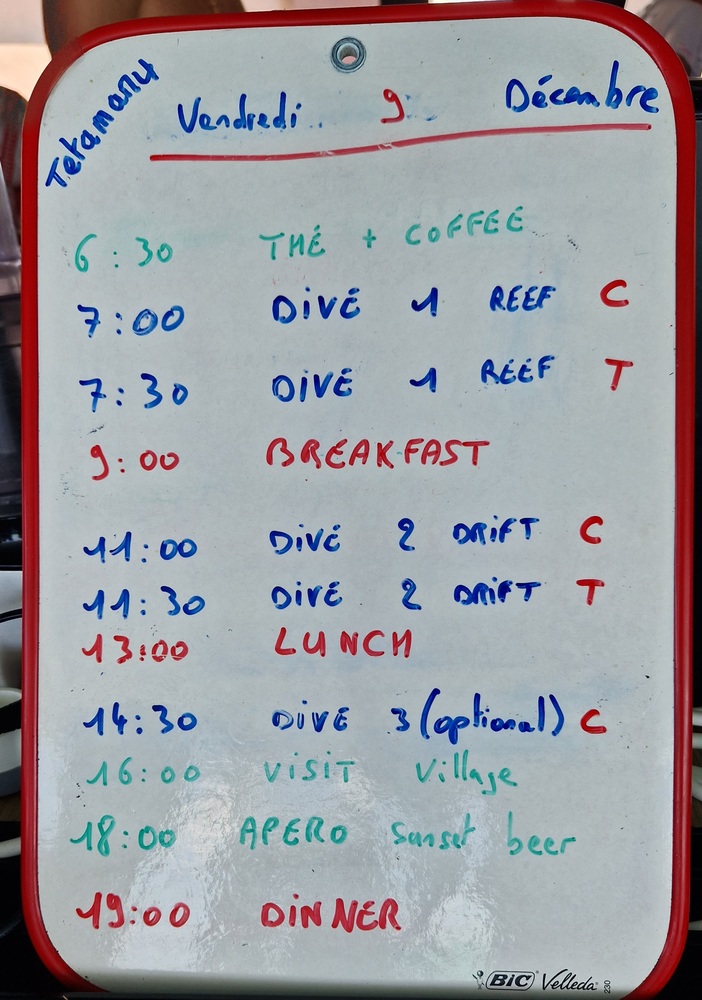 Tetamanu
Vendredi 9 Décembre
6:30 THÉ + COFFEE
7:00 DIVE 1 REEF C
7:30 DIVE 1 REEF T
9:00 BREAKFAST
11:00 DIVE 2 DRIFT C
11:30 DIVE 2 DRIFT T
13:00 LUNCH
14:30 DIVE 3 (optional) C
16:00 VISIT Village
18:00 APERO Sunset beer
19:00 DINNER
BIC Velleda 230